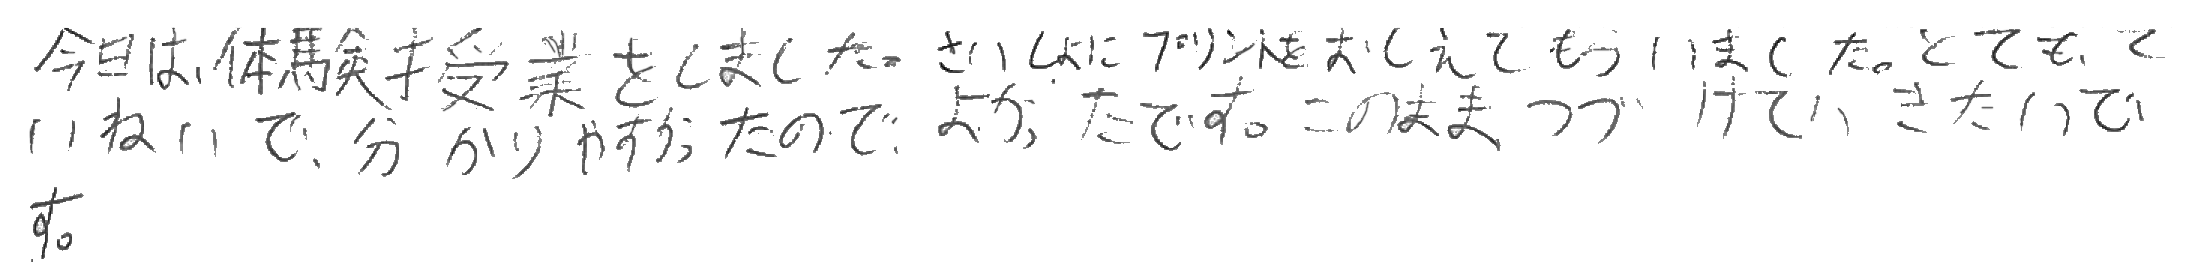 今日は、体験才受業をしました。さいしょにプリントをおしえてもらいました。とても、て
いねいで、分かりやすかったので、よかったです。このまま つづけていきたいで
す。